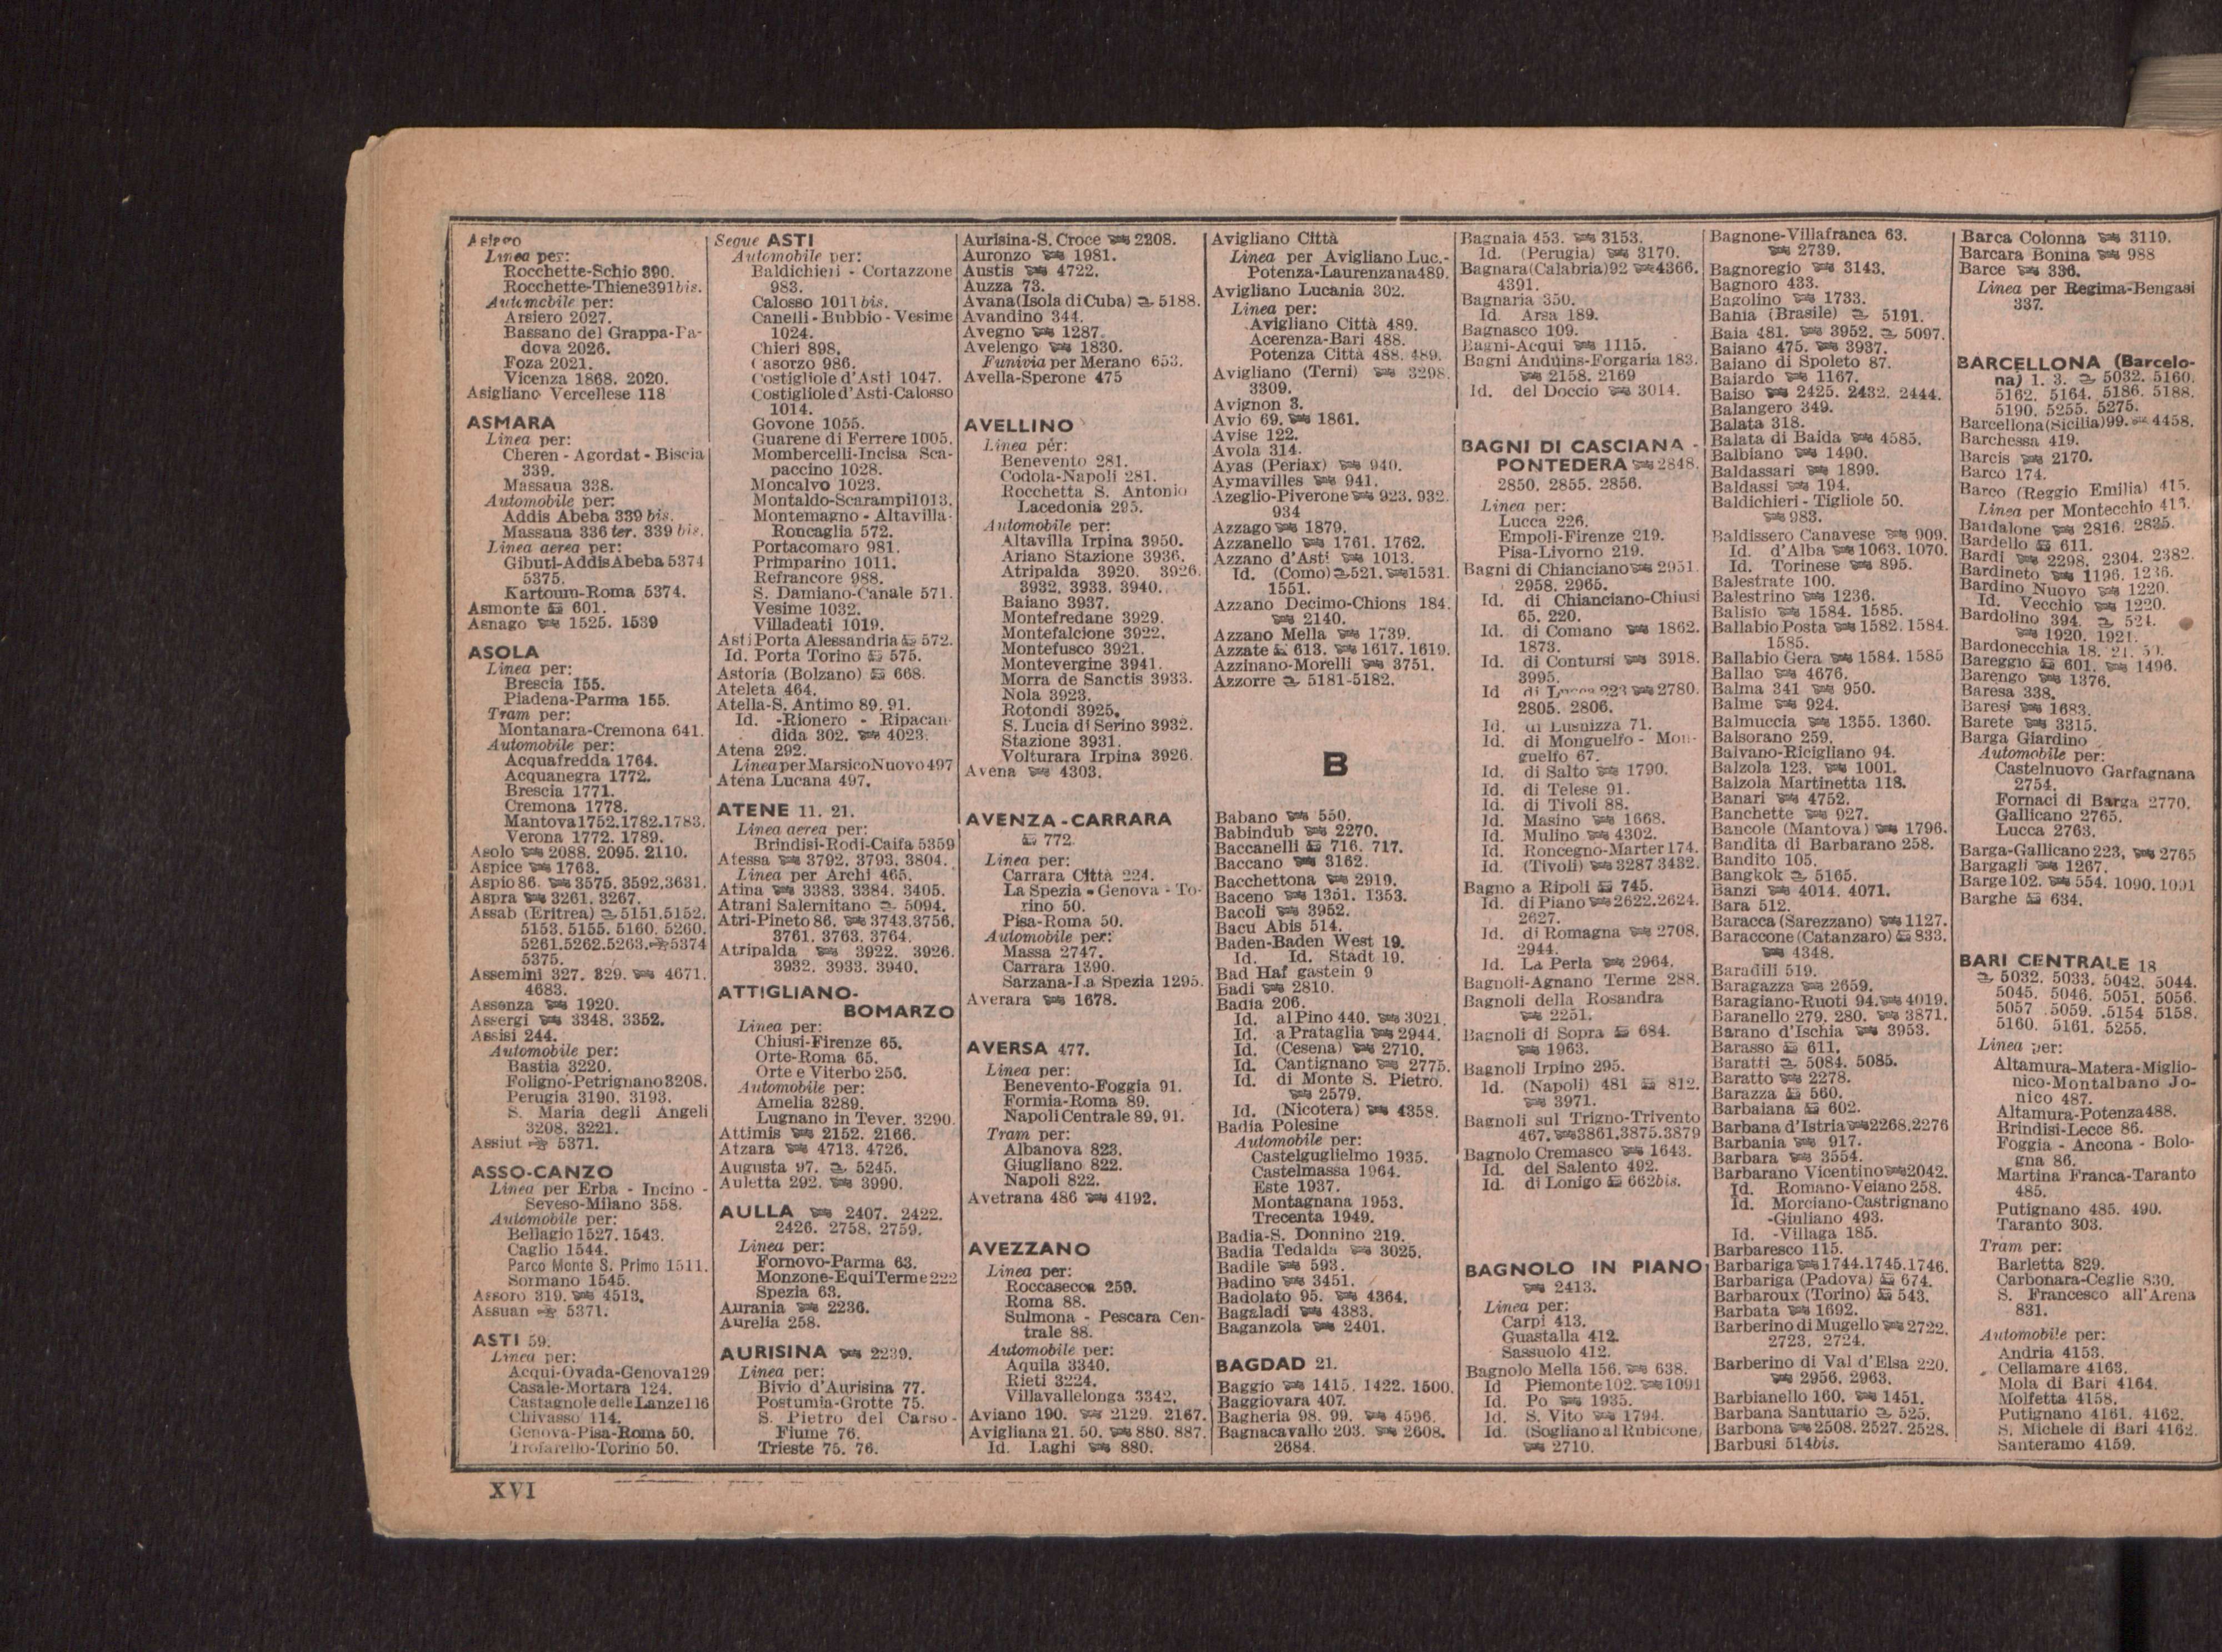 Asiago
Linea per:
Rocchette-Schio 390.
Rocchette-Thiene 391 bis.
Automobile per:
Arsiero 2027.
Bassano del Grappa-Pa-
dova 2026.
Foza 2021.
Vicenza 1868. 2020.
Asigliano Vercellese 118
ASMARA
Linea per:
Cheren - Agordat - Biscia
339.
Massaua 338.
Automobile per:
Addis Abeba 339 bis.
Massaua 336 ter. 339 bis.
Linea aerea per:
Gibuti-Addis Abeba 5374
5375.
Kartoum-Roma 5374.
Asmonte 601.
Asnago 1525. 1539
ASOLA
Linea per:
Brescia 155.
Piadena-Parma 155.
Tram per:
Montanara-Cremona 641.
Automobile per:
Acquafredda 1764.
Acquanegra 1772.
Brescia 1771.
Cremona 1778.
Mantova 1752.1782.1783.
Verona 1772. 1789.
Asolo 2088. 2095. 2110.
Aspice 1763.
Aspio 86. 3575. 3592.3631.
Aspra 3261. 3267.
Assab (Eritrea) 5151.5152.
5153. 5155. 5160. 5260.
5261.5262.5263. 5374
5375.
Assemini 327. 329. 4671.
4683.
Assenza 1920.
Assergi 3348. 3352.
Assisi 244.
Automobile per:
Bastia 3220.
Foligno-Petrignano 3208.
Perugia 3190. 3193.
S. Maria degli Angeli
3208. 3221.
Assiut 5371.
ASSO-CANZO
Linea per Erba - Incino -
Seveso-Milano 358.
Automobile per:
Bellagio 1527. 1543.
Caglio 1544.
Parco Monte S. Primo 1511.
Sormano 1545.
Assoro 319. 4513.
Assuan 5371.
ASTI 59.
Linea per:
Acqui-Ovada-Genova 129
Casale-Mortara 124.
Castagnole delle Lanze 116
Chivasso 114.
Genova-Pisa-Roma 50.
Trofarello-Torino 50.
Segue ASTI
Automobile per:
Baldichieri - Cortazzone
983.
Calosso 1011 bis.
Canelli - Bubbio - Vesime
1024.
Chieri 898.
Casorzo 986.
Costigliole d'Asti 1047.
Costigliole d'Asti-Calosso
1014.
Govone 1055.
Guarene di Ferrere 1005.
Mombercelli-Incisa Sca-
paccino 1028.
Moncalvo 1023.
Montaldo-Scarampi 1013.
Montemagno - Altavilla-
Roncaglia 572.
Portacomaro 981.
Primparino 1011.
Refrancore 988.
S. Damiano-Canale 571.
Vesime 1032.
Villadeati 1019.
Asti Porta Alessandria 572.
Id. Porta Torino 575.
Astoria (Bolzano) 668.
Ateleta 464.
Atella-S. Antimo 89. 91.
Id. -Rionero - Ripacan
dida 302. 4023.
Atena 292.
Linea per Marsico Nuovo 497
Atena Lucana 497.
ATENE 11. 21.
Linea aerea per:
Brindisi-Rodi-Caifa 5359
Atessa 3792. 3793. 3804.
Linea per Archi 465.
Atina 3383. 3384. 3405.
Atrani Salernitano 5094.
Atri-Pineto 86. 3743.3756.
3761. 3763. 3764.
Atripalda 3922. 3926.
3932. 3933. 3940.
ATTIGLIANO-
BOMARZO
Linea per:
Chiusi-Firenze 65.
Orte-Roma 65.
Orte e Viterbo 256.
Automobile per:
Amelia 3289.
Lugnano in Tever. 3290.
Attimis 2152. 2166.
Atzara 4713. 4726.
Augusta 97. 5245.
Auletta 292. 3990.
AULLA 2407. 2422.
2426. 2758. 2759.
Linea per:
Fornovo-Parma 63.
Monzone-Equi Terme 222
Spezia 63.
Aurania 2236.
Aurelia 258.
AURISINA 2239.
Linea per:
Bivio d'Aurisina 77.
Postumia-Grotte 75.
S. Pietro del Carso-
Fiume 76.
Trieste 75. 76.
Aurisina-S. Croce 2208.
Auronzo 1981.
Austis 4722.
Auzza 73.
Avana (Isola di Cuba) 5188.
Avandino 344.
Avegno 1287.
Avelengo 1830.
Funivia per Merano 653.
Avella-Sperone 475
AVELLINO
Linea per:
Benevento 281.
Codola-Napoli 281.
Rocchetta S. Antonio
Lacedonia 295.
Automobile per:
Altavilla Irpina 3950.
Ariano Stazione 3936.
Atripalda 3920. 3926.
3932. 3933. 3940.
Baiano 3937.
Montefredane 3929.
Montefalcione 3922.
Montefusco 3921.
Montevergine 3941.
Morra de Sanctis 3933.
Nola 3923.
Rotondi 3925.
S. Lucia di Serino 3932.
Stazione 3931.
Volturara Irpina 3926.
Avena 4303.
AVENZA-CARRARA
772.
Linea per:
Carrara Città 224.
La Spezia - Genova - To-
rino 50.
Pisa-Roma 50.
Automobile per:
Massa 2747.
Carrara 1390.
Sarzana-La Spezia 1295.
Averara 1678.
AVERSA 477.
Linea per:
Benevento-Foggia 91.
Formia-Roma 89.
Napoli Centrale 89. 91.
Tram per:
Albanova 823.
Giugliano 822.
Napoli 822.
Avetrana 486 4192.
AVEZZANO
Linea per:
Roccasecca 259.
Roma 88.
Sulmona - Pescara Cen-
trale 88.
Automobile per:
Aquila 3340.
Rieti 3224.
Villavallelonga 3342.
Aviano 190. 2129. 2167.
Avigliana 21. 50. 880. 887.
Id. Laghi 880.
Avigliano Città
Linea per Avigliano Luc.-
Potenza-Laurenzana 489.
Avigliano Lucania 302.
Linea per:
Avigliano Città 489.
Acerenza-Bari 488.
Potenza Città 488. 489.
Avigliano (Terni) 3298.
3309.
Avignon 3.
Avio 69. 1861.
Avise 122.
Avola 314.
Ayas (Periax) 940.
Aymavilles 941.
Azeglio-Piverone 923. 932.
934
Azzago 1879.
Azzanello 1761. 1762.
Azzano d'Asti 1013.
Id. (Como) 521. 1531.
1551.
Azzano Decimo-Chions 184.
2140.
Azzano Mella 1739.
Azzate 613. 1617. 1619.
Azzinano-Morelli 3751.
Azzorre 5181-5182.
B
Babano 550.
Babindub 2270.
Baccanelli 716. 717.
Baccano 3162.
Bacchettona 2919.
Baceno 1351. 1353.
Bacoli 3952.
Bacu Abis 514.
Baden-Baden West 19.
Id. Id. Stadt 19.
Bad Haf gastein 9
Badi 2810.
Badia 206.
Id. al Pino 440. 3021.
Id. a Prataglia 2944.
Id. (Cesena) 2710.
Id. Cantignano 2775.
Id. di Monte S. Pietro.
2579.
Id. (Nicotera) 4358.
Badia Polesine
Automobile per:
Castelguglielmo 1935.
Castelmassa 1964.
Este 1937.
Montagnana 1953.
Trecenta 1949.
Badia-S. Donnino 219.
Badia Tedalda 3025.
Badile 593.
Badino 3451.
Badolato 95. 4364.
Bagaladi 4383.
Baganzola 2401.
BAGDAD 21.
Baggio 1415. 1422. 1500.
Baggiovara 407.
Bagheria 98. 99. 4596.
Bagnacavallo 203. 2608.
2684.
Bagnaia 453. 3153.
Id. (Perugia) 3170.
Bagnara (Calabria) 92 4366.
4391.
Bagnaria 350.
Id. Arsa 189.
Bagnasco 109.
Bagni-Acqui 1115.
Bagni Andùins-Forgaria 183.
2158. 2169
Id. del Doccio 3014.
BAGNI DI CASCIANA -
PONTEDERA 2848.
2850. 2855. 2856.
Linea per:
Lucca 226.
Empoli-Firenze 219.
Pisa-Livorno 219.
Bagni di Chianciano 2951.
2958. 2965.
Id. di Chianciano-Chiusi
65. 220.
Id. di Comano 1862.
1873.
Id. di Contursi 3918.
3995.
Id di Lucca 223 2780.
2805. 2806.
Id. di Lusnizza 71.
Id. di Monguelfo - Mon-
guelfo 67.
Id. di Salto 1790.
Id. di Telese 91.
Id. di Tivoli 88.
Id. Masino 1668.
Id. Mulino 4302.
Id. Roncegno-Marter 174.
Id. (Tivoli) 3287 3432.
Bagno a Ripoli 745.
Id. di Piano 2622.2624.
2627.
Id. di Romagna 2708.
2944.
Id. La Perla 2964.
Bagnoli-Agnano Terme 288.
Bagnoli della Rosandra
2251.
Bagnoli di Sopra 684.
1963.
Bagnoli Irpino 295.
Id. (Napoli) 481 812.
3971.
Bagnoli sul Trigno-Trivento
467. 3861.3875.3879
Bagnolo Cremasco 1643.
Id. del Salento 492.
Id. di Lonigo 662bis.
BAGNOLO IN PIANO
2413.
Linea per:
Carpi 413.
Guastalla 412.
Sassuolo 412.
Bagnolo Mella 156. 638.
Id Piemonte 102. 1091
Id. Po 1935.
Id. S. Vito 1794.
Id. (Sogliano al Rubicone)
2710.
Bagnone-Villafranca 63.
2739.
Bagnoregio 3143.
Bagnoro 433.
Bagolino 1733.
Bahia (Brasile) 5191.
Baia 481. 3952. 5097.
Baiano 475. 3937.
Baiano di Spoleto 87.
Baiardo 1167.
Baiso 2425. 2432. 2444.
Balangero 349.
Balata 318.
Balata di Baida 4585.
Balbiano 1490.
Baldassari 1899.
Baldassi 194.
Baldichieri - Tigliole 50.
983.
Baldissero Canavese 909.
Id. d'Alba 1063. 1070.
Id. Torinese 895.
Balestrate 100.
Balestrino 1236.
Balisio 1584. 1585.
Ballabio Posta 1582. 1584.
1585.
Ballabio Gera 1584. 1585
Ballao 4676.
Balma 341 950.
Balme 924.
Balmuccia 1355. 1360.
Balsorano 259.
Balvano-Ricigliano 94.
Balzola 123. 1001.
Balzola Martinetta 118.
Banari 4752.
Banchette 927.
Bancole (Mantova) 1796.
Bandita di Barbarano 258.
Bandito 105.
Bangkok 5165.
Banzi 4014. 4071.
Bara 512.
Baracca (Sarezzano) 1127.
Baraccone (Catanzaro) 833.
4348.
Baradili 519.
Baragazza 2659.
Baragiano-Ruoti 94. 4019.
Baranello 279. 280. 3871.
Barano d'Ischia 3953.
Barasso 611.
Baratti 5084. 5085.
Baratto 2278.
Barazza 560.
Barbaiana 602.
Barbana d'Istria 2268.2276
Barbania 917.
Barbara 3554.
Barbarano Vicentino 2042.
Id. Romano-Veiano 258.
Id. Morciano-Castrignano
-Giuliano 493.
Id. -Villaga 185.
Barbaresco 115.
Barbariga 1744.1745.1746.
Barbariga (Padova) 674.
Barbaroux (Torino) 543.
Barbata 1692.
Barberino di Mugello 2722.
2723. 2724.
Barberino di Val d'Elsa 220.
2956. 2963.
Barbianello 160. 1451.
Barbana Santuario 525.
Barbona 2508. 2527. 2528.
Barbusi 514bis.
Barca Colonna 3119.
Barcara Bonina 988
Barce 336.
Linea per Regima-Bengasi
337.
BARCELLONA (Barcelo-
na) 1. 3. 5032. 5160.
5162. 5164. 5186. 5188.
5190. 5255. 5275.
Barcellona (Sicilia) 99. 4458.
Barchessa 419.
Barcis 2170.
Barco 174.
Barco (Reggio Emilia) 415.
Linea per Montecchio 415.
Bardalone 2816. 2835.
Bardello 611.
Bardi 2298. 2304. 2382.
Bardineto 1196. 1236.
Bardino Nuovo 1220.
Id. Vecchio 1220.
Bardolino 394. 524.
1920. 1921.
Bardonecchia 18. 21. 50.
Bareggio 601. 1496.
Barengo 1376.
Baresa 338.
Baresi 1683.
Barete 3315.
Barga Giardino
Automobile per:
Castelnuovo Garfagnana
2754.
Fornaci di Barga 2770.
Gallicano 2765.
Lucca 2763.
Barga-Gallicano 223. 2765
Bargagli 1267.
Barge 102. 554. 1090. 1091
Barghe 634.
BARI CENTRALE 18
5032. 5033. 5042. 5044.
5045. 5046. 5051. 5056.
5057 .5059. .5154 5158.
5160. 5161. 5255.
Linea per:
Altamura-Matera-Miglio-
nico-Montalbano Jo-
nico 487.
Altamura-Potenza 488.
Brindisi-Lecce 86.
Foggia - Ancona - Bolo-
gna 86.
Martina Franca-Taranto
485.
Putignano 485. 490.
Taranto 303.
Tram per:
Barletta 829.
Carbonara-Ceglie 830.
S. Francesco all'Arena
831.
Automobile per:
Andria 4153.
Cellamare 4163.
Mola di Bari 4164.
Molfetta 4158.
Putignano 4161. 4162.
S. Michele di Bari 4162.
Santeramo 4159.
XVI